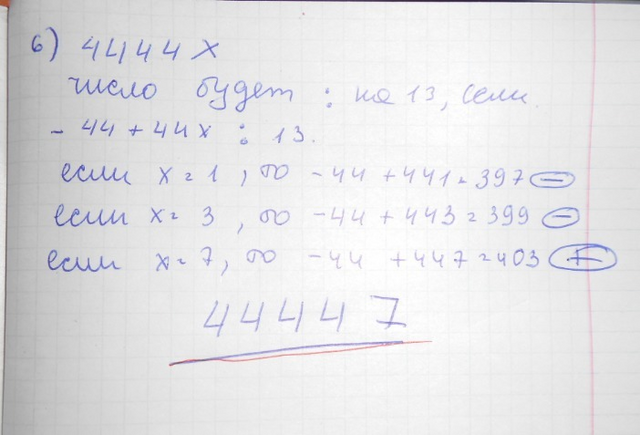 6) 4444x
число будет ⋮ на 13, если
- 44 + 44x ⋮ 13.
если x = 1, то -44 + 441 = 397 -
если x = 3, то -44 + 443 = 399 -
если x = 7, то -44 + 447 = 403 +
44447